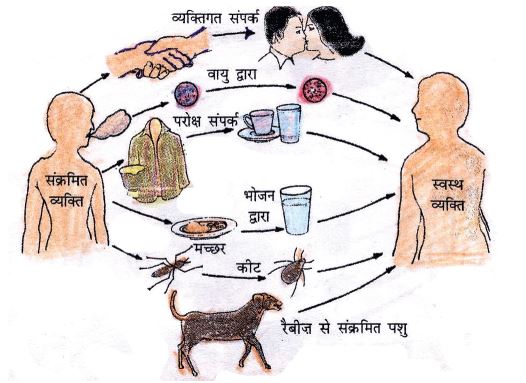 व्यक्तिगत संपर्क
वायु द्वारा
परोक्ष संपर्क
संक्रमित
व्यक्ति
स्वस्थ
व्यक्ति
भोजन
द्वारा
मच्छर
कीट
रैबीज से संक्रमित पशु